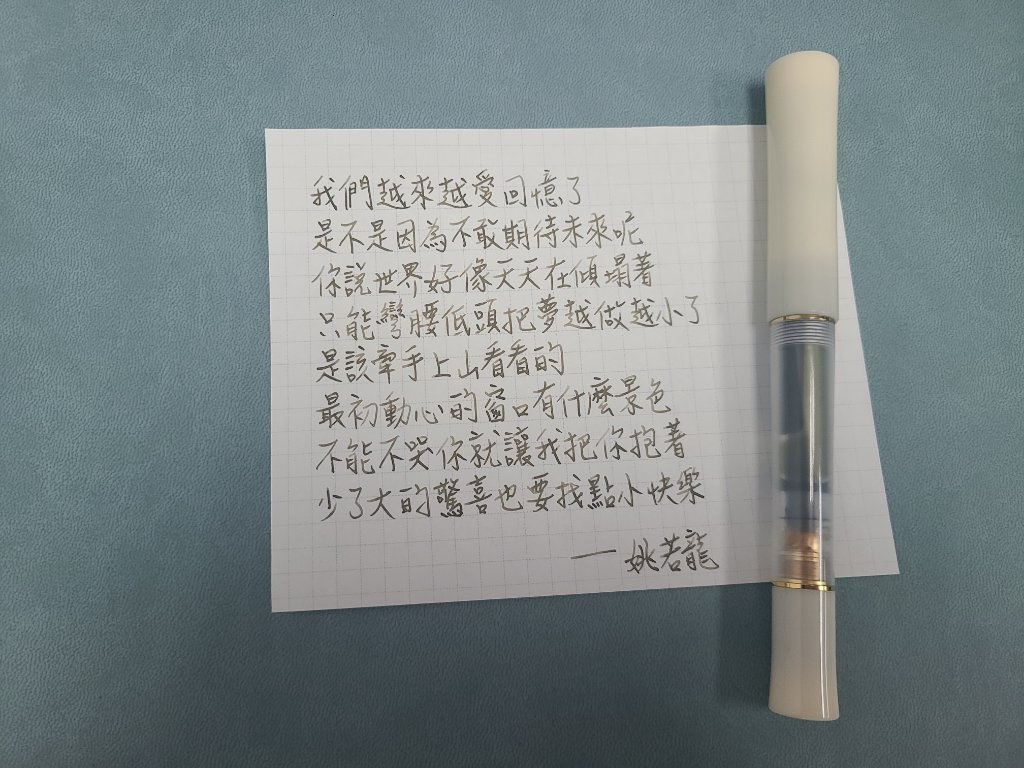 我們越來越愛回憶了
是不是因為不敢期待未來呢
你說世界好像天天在傾塌著
只能彎腰低頭把夢越做越小了
是該牽手上山看看的
最初動心的窗口有什麼景色
不能不哭你就讓我把你抱著
少了大的驚喜也要找點小快樂
— 姚若龍